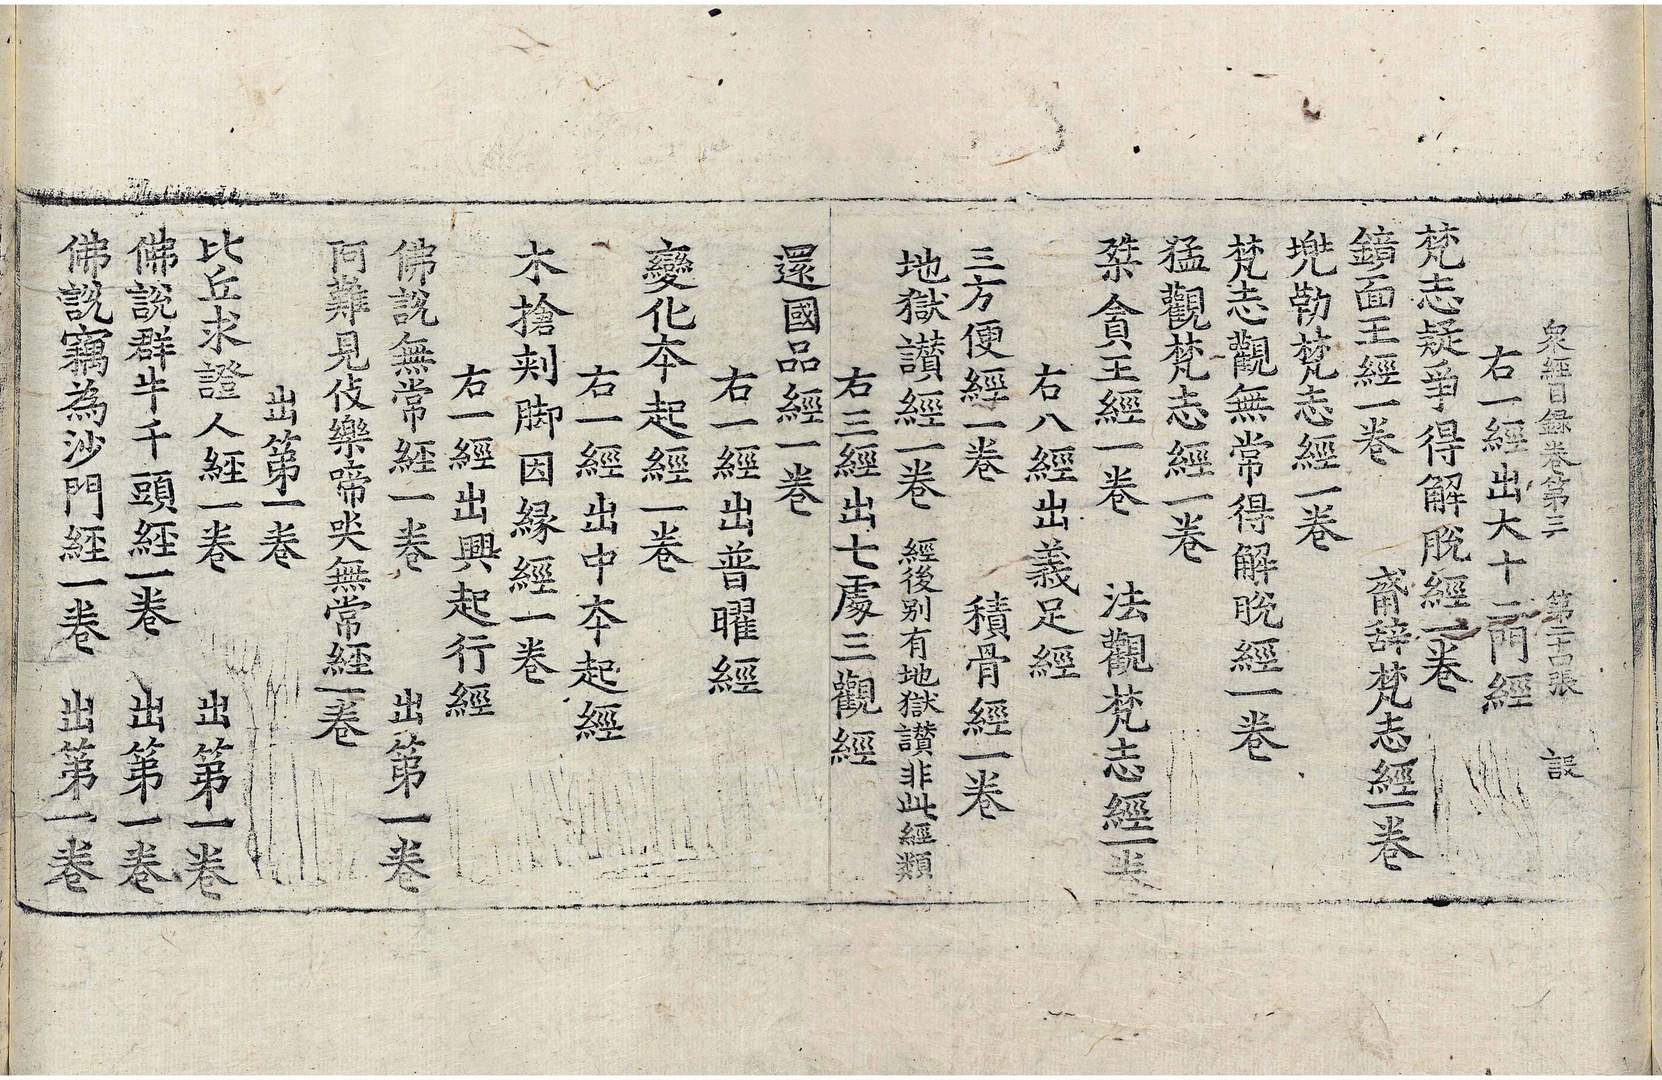 衆經目録卷第三 第二十張 設
右一經出大十二門經
梵志疑爭得解脫經一卷
鏡面王經一卷 齋辞梵志經一卷
兠勒梵志經一卷
梵志觀無常得解脫經一卷
猛觀梵志經一卷 法觀梵志經一卷
桀貪王經一卷
右八經出義足經
三方便經一卷 積骨經一卷
地獄讃經一卷 經後别有地獄讃非此經類
右三經出七處三觀經
還國品經一卷
右一經出普曜經
變化本起經一卷
右一經出中本起經
木搶刾脚因緣經一卷
右一經出興起行經
佛說無常經一卷 出第一卷
阿難見伎樂啼哭無常經一卷
出第一卷
比丘求證人經一卷 出第一卷
佛說群牛千頭經一卷 出第一卷
佛說竊為沙門經一卷 出第一卷